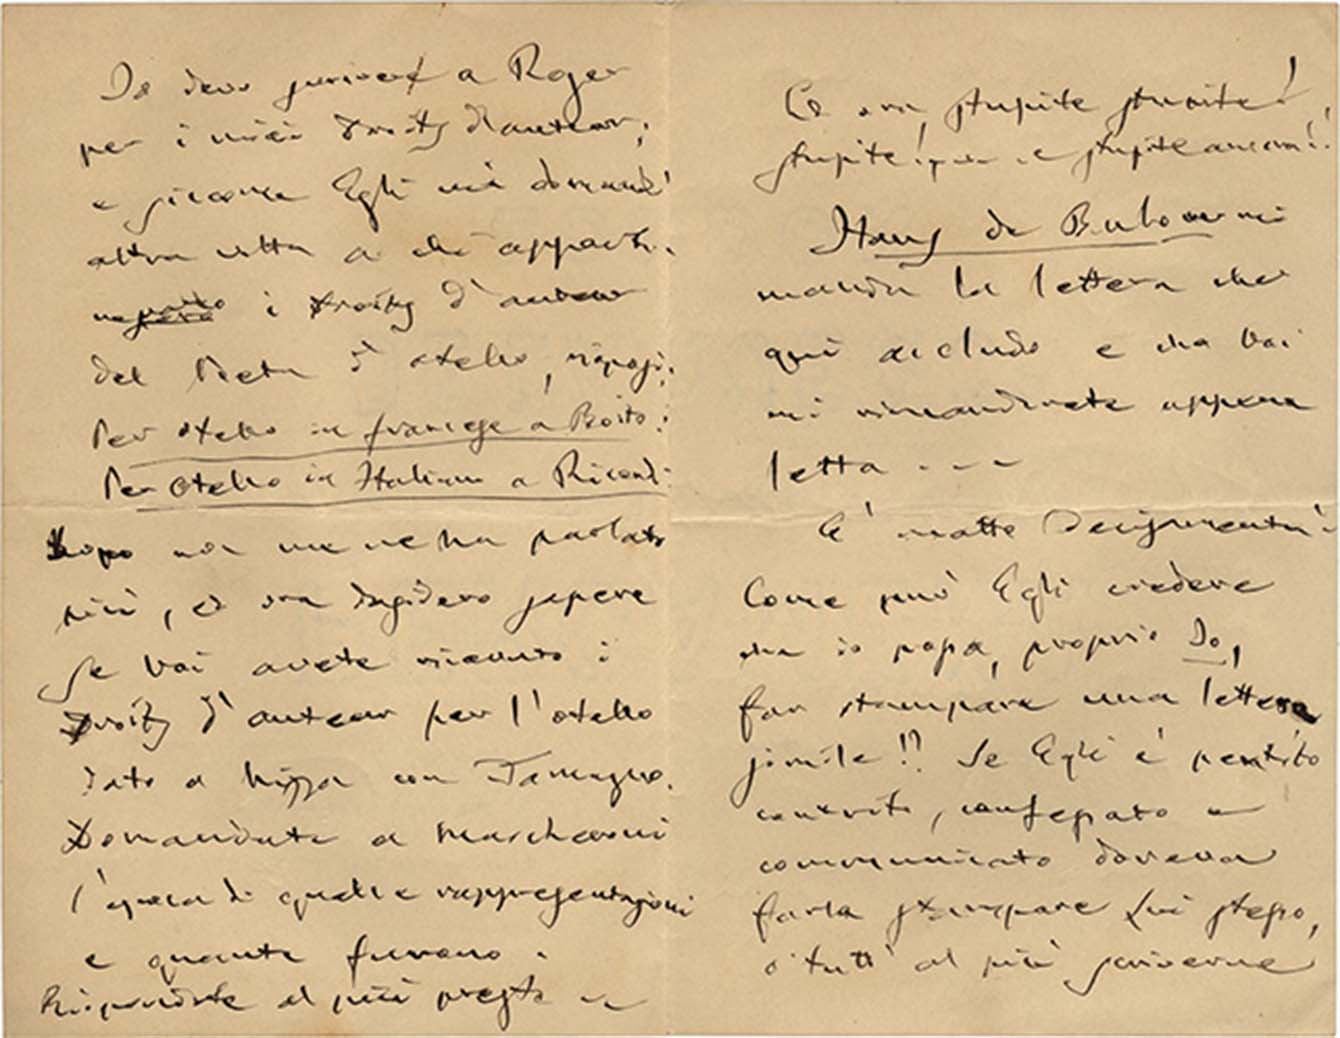 Io devo scrivere a Roger
per i miei Droits d'auteur,
e siccome Egli mi domandò
altra volta a chi apparte-
i Droits d'auteur
del Poeta d'Otello, risposi:
Per Otello in francese a Boito:
Per Otello in Italiano a Ricordi
Dopo non me ne ha parlato
più, ed ora desidero sapere
se Voi avete ricevuto i
Droits d'auteur per l'Otello
dato a Nizza con Tamagno.
Domandate a Mascheroni
l'epoca di quelle rappresentazioni
e quante furono.
Rispondete al più presto
Ed ora stupite stupite!
stupite! stupite ancora!!
Hans de Bulow mi
manda la lettera che
qui accludo e che Voi
mi rimanderete appena
letta - - -
E' matto Decisamente!
Come può Egli credere
che io possa, proprio Io,
far stampare una lettera
simile!! Se Egli è pentito
contrito, confessato e
communicato doveva
farla stampare Lui stesso,
o tutt' al più scriverne